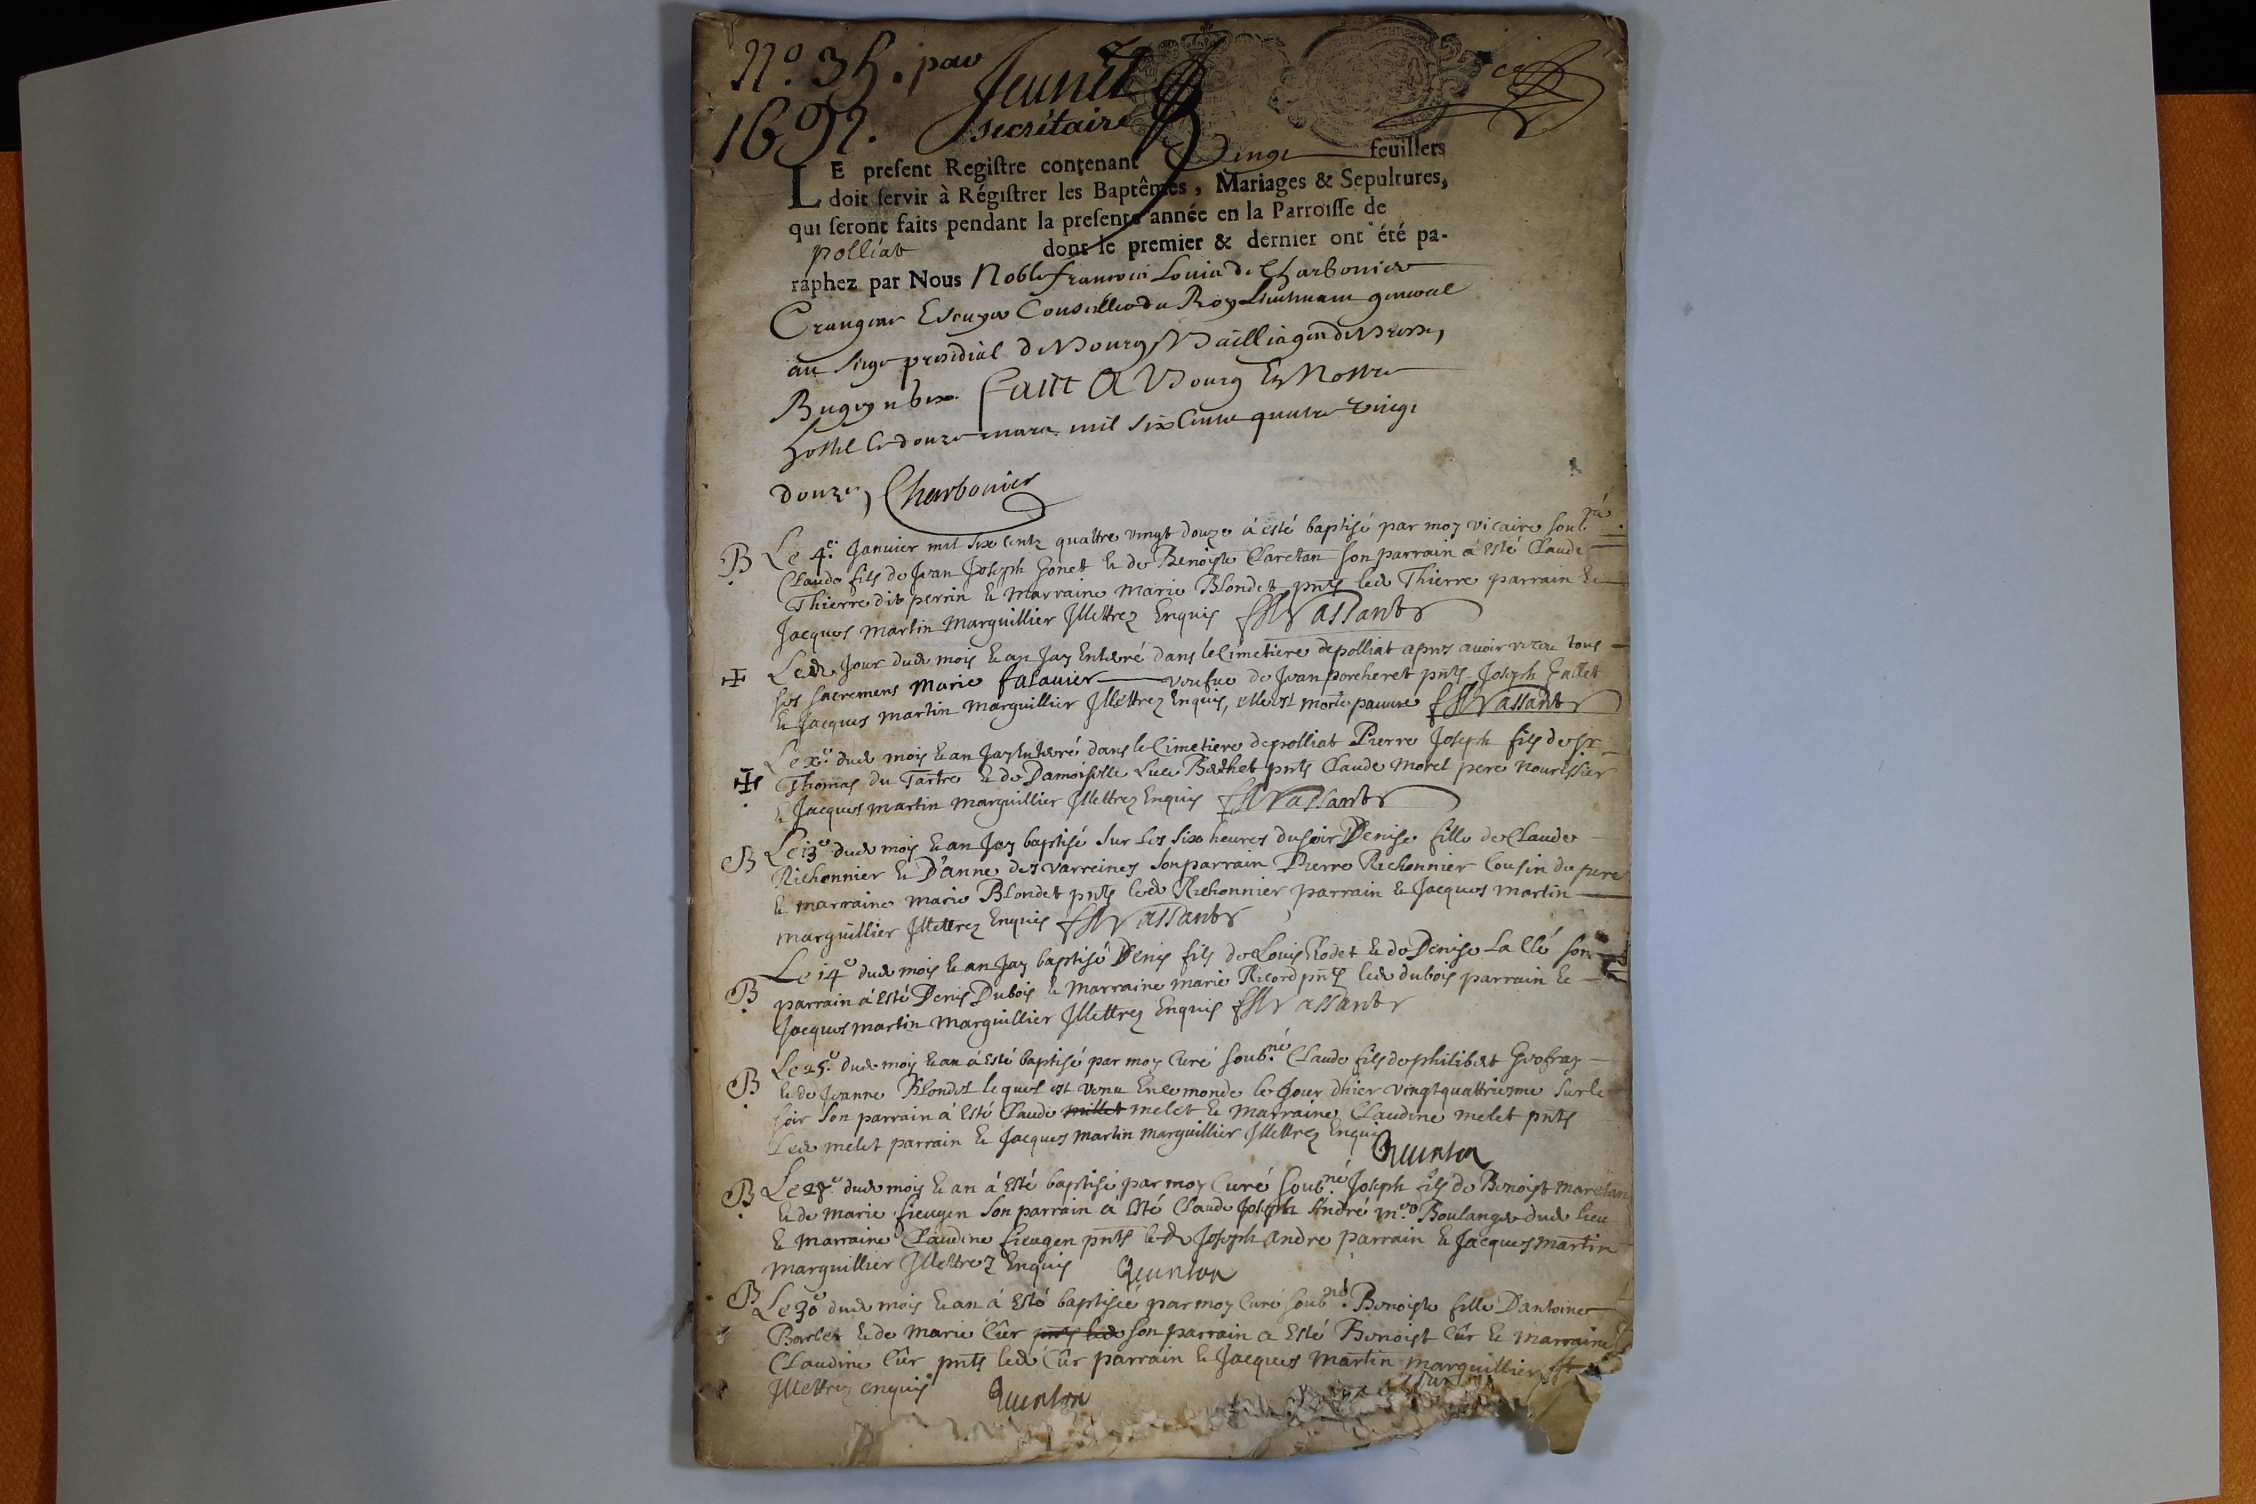 N.º 35. par Jeunet
1692. secrétaire
LE present Registre contenant Vingt feuillets
doit servir à Régistrer les Baptêmes, Mariages & Sepultures,
qui seront faits pendant la presente année en la Parroisse de
polliat dont le premier & dernier ont été pa-
raphez par Nous Noble francois Louis de Charbonier
Crangeac Escuyer Conseiller du Roy Lieutenant general
au siege presidial de Bourg Bailliage de Bresse,
Bugey Faict A Bourg En Nostre
hostel le douze mars mil six Cents quatre vingt
douze, Charbonier
B Le 4e. Janvier mil six centz quattre vingt douze á esté baptisé par moy vicaire soub.né
Claude fils de Jean Joseph Gonet & de Benoiste Caretan son parrain á esté Claude
Thierre dit perrin & Marraine Marie Blondet pnts led Thierre parrain &
Jacques Martin Marguillier Illettrez Enquis Vassant
Led Jour dud mois & an Jay Enterré dans le Cimetiere de polliat apres avoir receu tous
ses sacremens Marie falavier veufue de Jean porcheret pnts Joseph Gallet
& Jacques Martin Marguillier Illettrez Enquis, elle est morte pauvre Vassant
Le xe. dud mois & an Jay Enterré dans le Cimetiere de polliat Pierre Joseph fils de Sr
Thomas du Tartre & de Damoiselle Luce Bæthet pnts Claude Morel pere Nourissier
& Jacques Martin Marguillier Illettrez Enquis Vassant
B Le 13e dud mois & an Jay baptisé sur les six heures du soir Denise fille de Claude
Richonnier & D'anne des varreines son parrain Pierre Richonnier Cousin du pere
& marraine marie Blondet pnts led Richonnier parrain & Jacques Martin
Marguillier Illettrez Enquis Vassant
B Le 14e dud mois & an Jay baptisé Denis fils de Louis Rodet & de Denise la Clé son
parrain á Esté Denis Dubois & Marraine Marie Ricord pnts led dubois parrain &
Jacques Martin Marguillier Illettrez Enquis Vassant
B Le 25e. dud mois & an á esté baptisé par moy Curé soub.né Claude fils de philibert Geofray
& de Jeanne Blondet lequel est venu En ce monde le Jour d'hier vingt quattriesme sur le
soir son parrain á Esté Claude millet melet & Marraine Claudine melet pnts
Led melet parrain & Jacques Martin Marguillier Illettrez Enquis
Quinson
B Le 28e. dud mois & an á Esté baptisé par moy Curé soub.né Joseph fils de Benoist Maretan
& de Marie fieugen son parrain á Esté Claude Joseph André Boulanger dud lieu
& Marraine Claudine fieugen pnts led Joseph Andre parrain & Jacques Martin
Marguillier Illettrez Enquis Quinson
B Le 30e dud mois & an á Esté baptiseé par moy Curé soub.né Benoiste fille D'antoine
Borcler & de Marie Cûr pnts led son parrain a Esté Benoist Cûr & Marraine
Claudine Cûr pnts led Cûr parrain & Jacques Martin Marguillier
Illettrez enquis Quinson